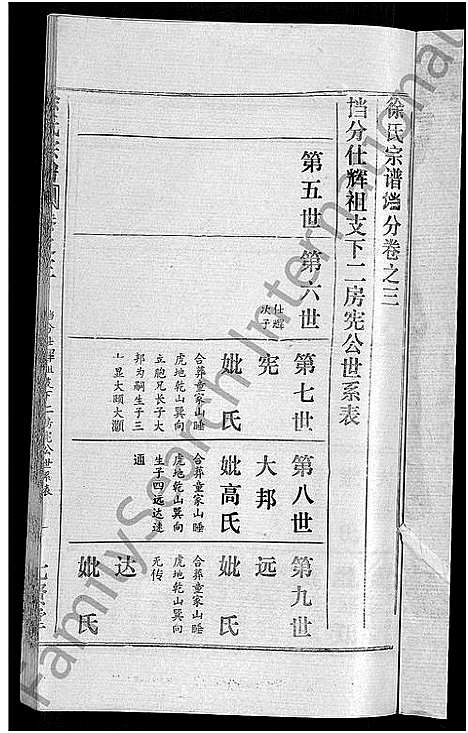 徐氏宗谱垱分卷之三
垱分仕辉祖支下二房宪公世系表
第五世
第六世
第七世
仕辉
次子
宪
妣氏
合葬童家山睡
虎地乾山巽向
立胞兄长子大
邦为嗣生子三
大显大颐大灏
第八世
大邦
妣高氏
合葬童家山睡
虎地乾山巽向
生子四远达速
通
第九世
远
妣氏
合葬童家山睡
虎地乾山巽向
无传
达
妣氏
垱分仕辉祖支下二房宪公世系表
FamilySearch International